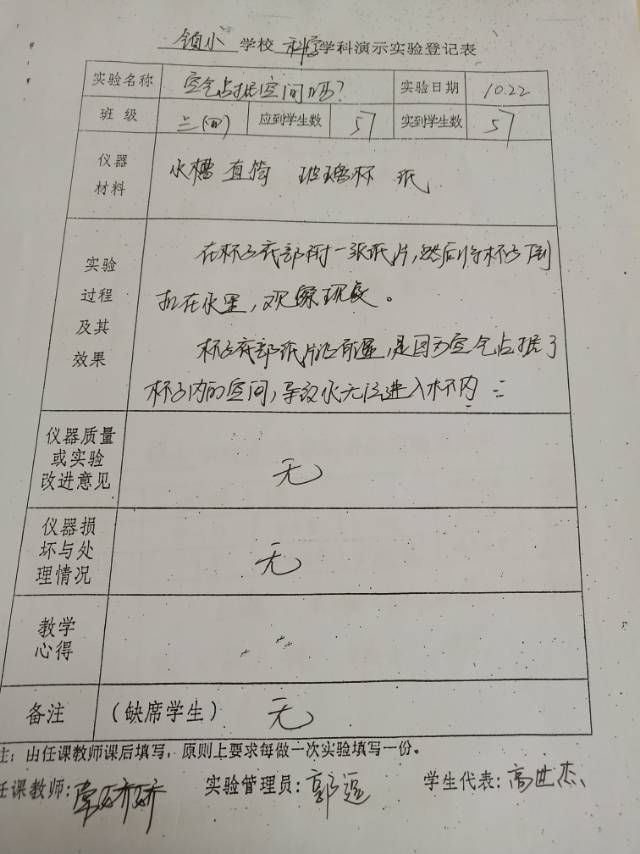 镇小 学校 科学 学科演示实验登记表
实验名称 空气占据空间吗? 实验日期 10.22
班级 三(四) 应到学生数 57 实到学生数 57
仪器
材料
水槽 直筒 玻璃杯 纸
实验
过程
及其
效果
在杯子底部附一张纸片,然后将杯子倒
扣在水里,观察现象。
杯子底部纸片没有湿,是因为空气占据了
杯子内的空间,导致水无法进入杯内
仪器质量
或实验
改进意见
无
仪器损
坏与处
理情况
无
教学
心得
备注 (缺席学生) 无
注:由任课教师课后填写,原则上要求每做一次实验填写一份。
任课教师: 实验管理员:郭遥 学生代表:高世杰